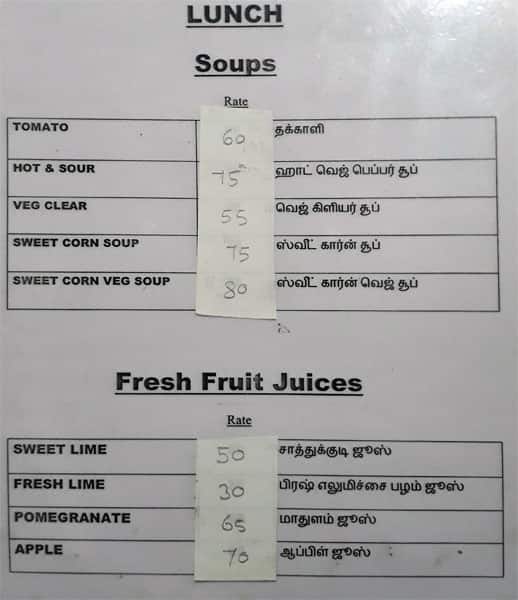 LUNCH
Soups
Rate
TOMATO 60 தக்காளி
HOT & SOUR 75 ஹாட் வெஜ் பெப்பர் சூப்
VEG CLEAR 55 வெஜ் கிளியர் சூப்
SWEET CORN SOUP 75 ஸ்வீட் கார்ன் சூப்
SWEET CORN VEG SOUP 80 ஸ்வீட் கார்ன் வெஜ் சூப்
Fresh Fruit Juices
Rate
SWEET LIME 50 சாத்துக்குடி ஜூஸ்
FRESH LIME 30 பிரஷ் எலுமிச்சை பழம் ஜூஸ்
POMEGRANATE 65 மாதுளம் ஜூஸ்
APPLE 70 ஆப்பிள் ஜூஸ்